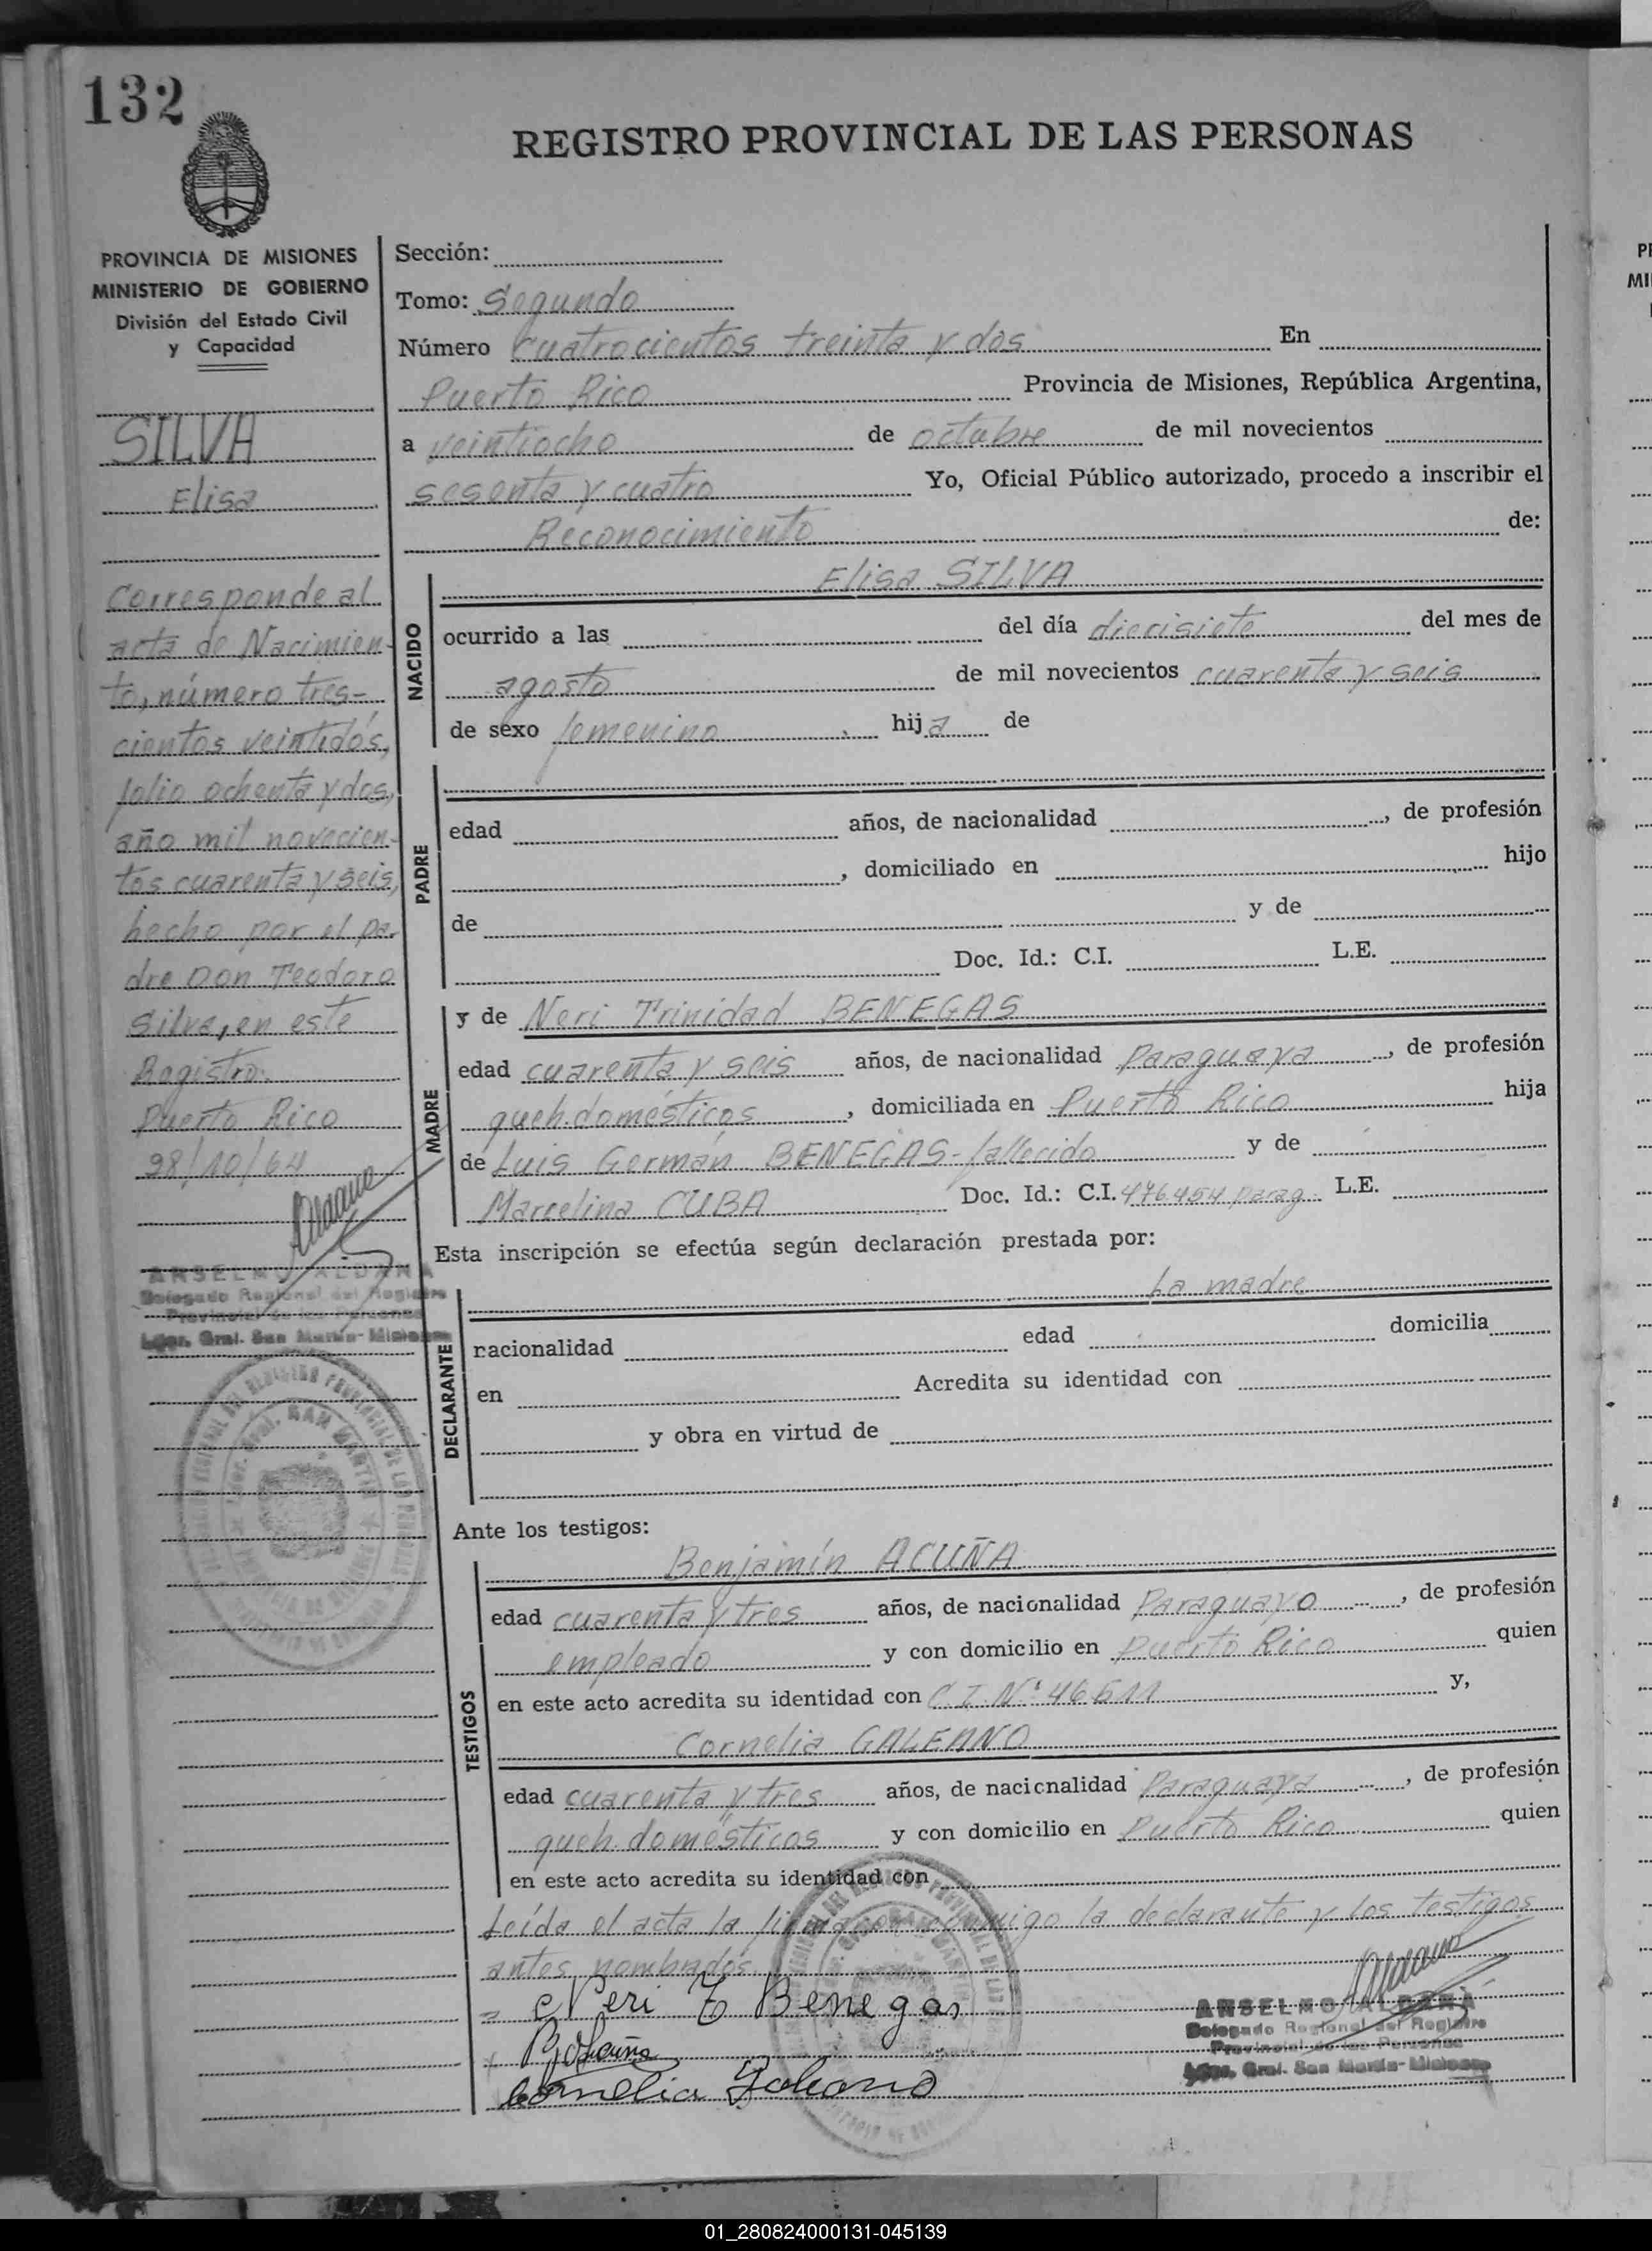 132
REGISTRO PROVINCIAL DE LAS PERSONAS
PROVINCIA DE MISIONES
MINISTERIO DE GOBIERNO
División del Estado Civil
y Capacidad
SILVA
Elisa
Corresponde al
acta de Nacimien-
to, número tres-
cientos veintidós,
folio ochenta y dos,
año mil novecien-
tos cuarenta y seis,
hecho por el pa-
dre Don Teodoro
Silva, en este
Registro.
Puerto Rico
28/10/64
ANSELMO ALDANA
Delegado Regional del Registro
Provincial de las Personas
Lдor. Gral. San Martín - Misiones
Sección:
Tomo: Segundo
Número Cuatrocientos treinta y dos En
Puerto Rico Provincia de Misiones, República Argentina,
a veintiocho de octubre de mil novecientos
sesenta y cuatro Yo, Oficial Público autorizado, procedo a inscribir el
Reconocimiento de:
NACIDO
Elisa SILVA
ocurrido a las del día diecisiete del mes de
agosto de mil novecientos cuarenta y seis
de sexo femenino, hija de
PADRE
edad años, de nacionalidad , de profesión
, domiciliado en hijo
de y de
Doc. Id.: C.I. L.E.
MADRE
y de Neri Trinidad BENEGAS
edad cuarenta y seis años, de nacionalidad Paraguaya , de profesión
queh. domésticos , domiciliada en Puerto Rico hija
de Luis Germán BENEGAS - fallecido y de
Marcelina CUBA Doc. Id.: C.I. 476.454 Parag. L.E.
Esta inscripción se efectúa según declaración prestada por:
DECLARANTE
La madre
nacionalidad edad domicilia
en Acredita su identidad con
y obra en virtud de
Ante los testigos:
TESTIGOS
Benjamín ACUÑA
edad cuarenta y tres años, de nacionalidad Paraguayo , de profesión
empleado y con domicilio en Puerto Rico quien
en este acto acredita su identidad con C.I. Nº 46511 y,
Cornelia GALEANO
edad cuarenta y tres años, de nacionalidad Paraguaya , de profesión
queh. domésticos y con domicilio en Puerto Rico quien
en este acto acredita su identidad con
Leída el acta la firman conmigo la declarante y los testigos
antes nombrados.
Neri T Benegas
BjAcuña
Cornelia Galeano
ANSELMO ALDANA
Delegado Regional del Registro
Provincial de las Personas
Gral. San Martín - Misiones
01_280824000131-045139